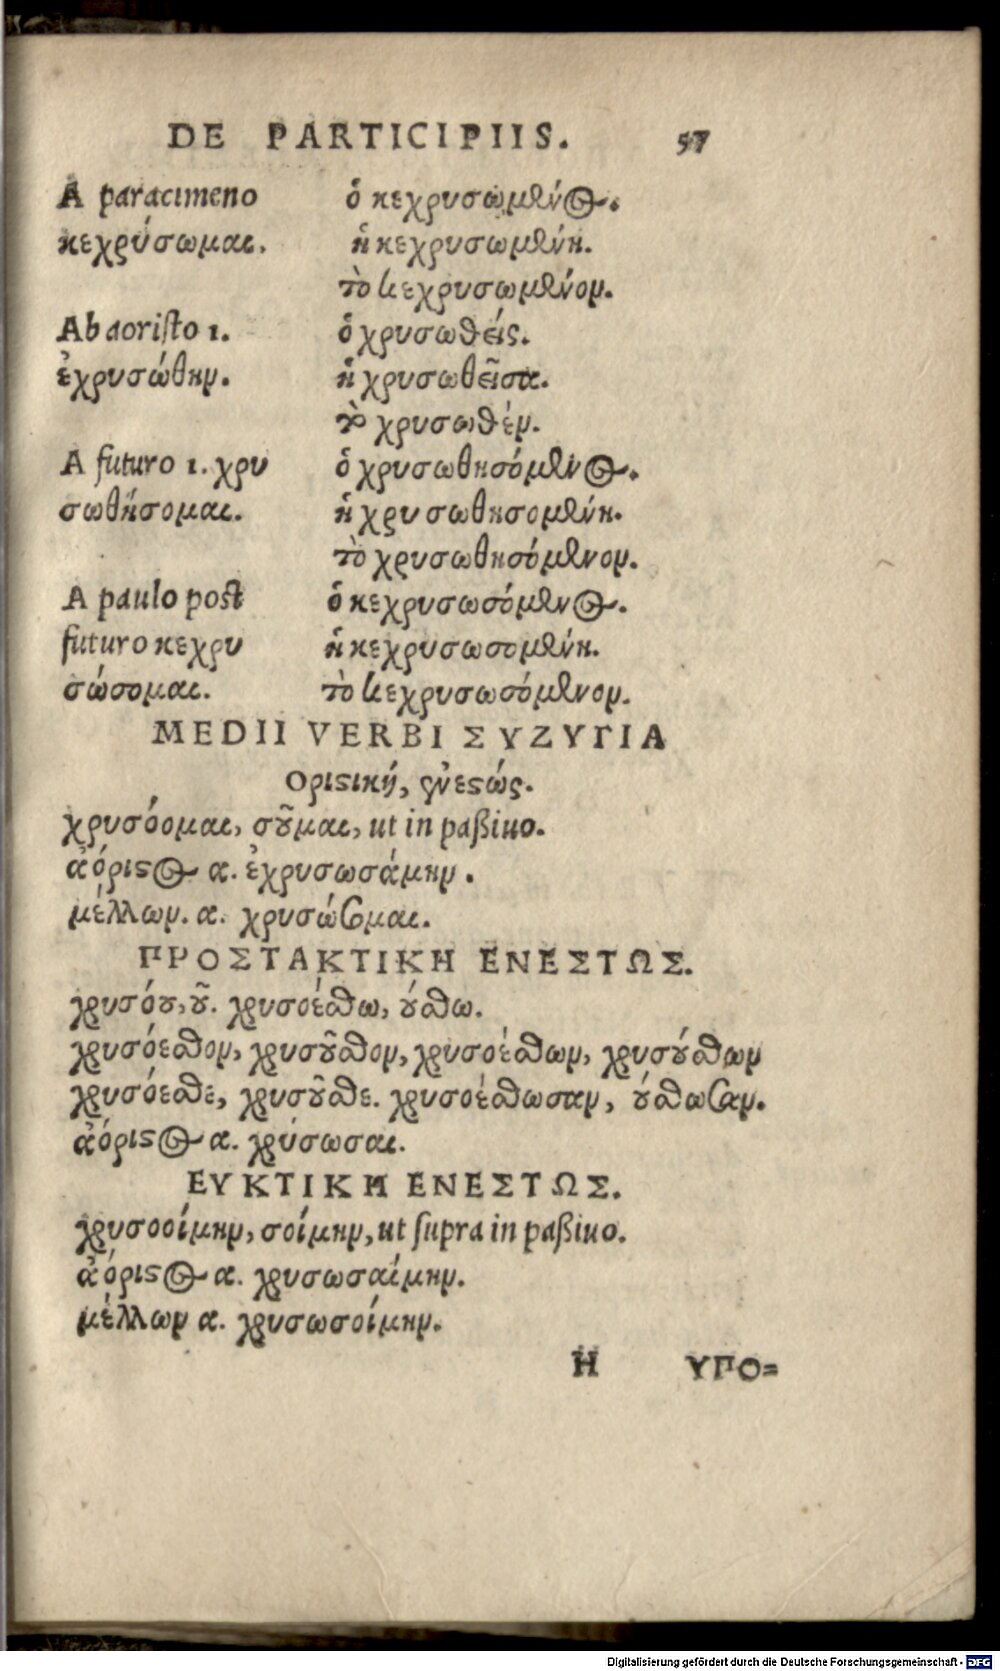 DE PARTICIPIIS. 57
A paracimeno ὁ κεχρυσωμένος.
κεχρύσωμαι. ἡ κεχρυσωμένη.
τὸ κεχρυσωμένον.
Ab aoristo 1. ὁ χρυσωθείς.
ἐχρυσώθην. ἡ χρυσωθεῖσα.
τὸ χρυσωθέν.
A futuro 1. χρυ ὁ χρυσωθησόμενος.
σωθήσομαι. ἡ χρυσωθησομένη.
τὸ χρυσωθησόμενον.
A paulo post ὁ κεχρυσωσόμενος.
futuro κεχρυ ἡ κεχρυσωσομένη.
σώσομαι. τὸ κεχρυσωσόμενον.
MEDII VERBI ΣΥΖΥΓΙΑ
Οριστική, ἐνεστώς.
χρυσόομαι, σοῦμαι, ut in paßiuo.
ἀόριστος α. ἐχρυσωσάμην.
μέλλων. α. χρυσώσομαι.
ΠΡΟΣΤΑΚΤΙΚΗ ΕΝΕΣΤΩΣ.
χρυσόου, οῦ. χρυσοέσθω, ούσθω.
χρυσόεσθον, χρυσοῦσθον, χρυσοέσθων, χρυσούσθων
χρυσόεσθε, χρυσοῦσθε. χρυσοέσθωσαν, ούσθωσαν.
ἀόριστος α. χρύσωσαι.
ΕΥΚΤΙΚΗ ΕΝΕΣΤΩΣ.
χρυσοοίμην, σοίμην, ut supra in paßiuo.
ἀόριστος α. χρυσωσαίμην.
μέλλων α. χρυσωσοίμην.
H ΥΠΟ=
Digitalisierung gefördert durch die Deutsche Forschungsgemeinschaft - DFG